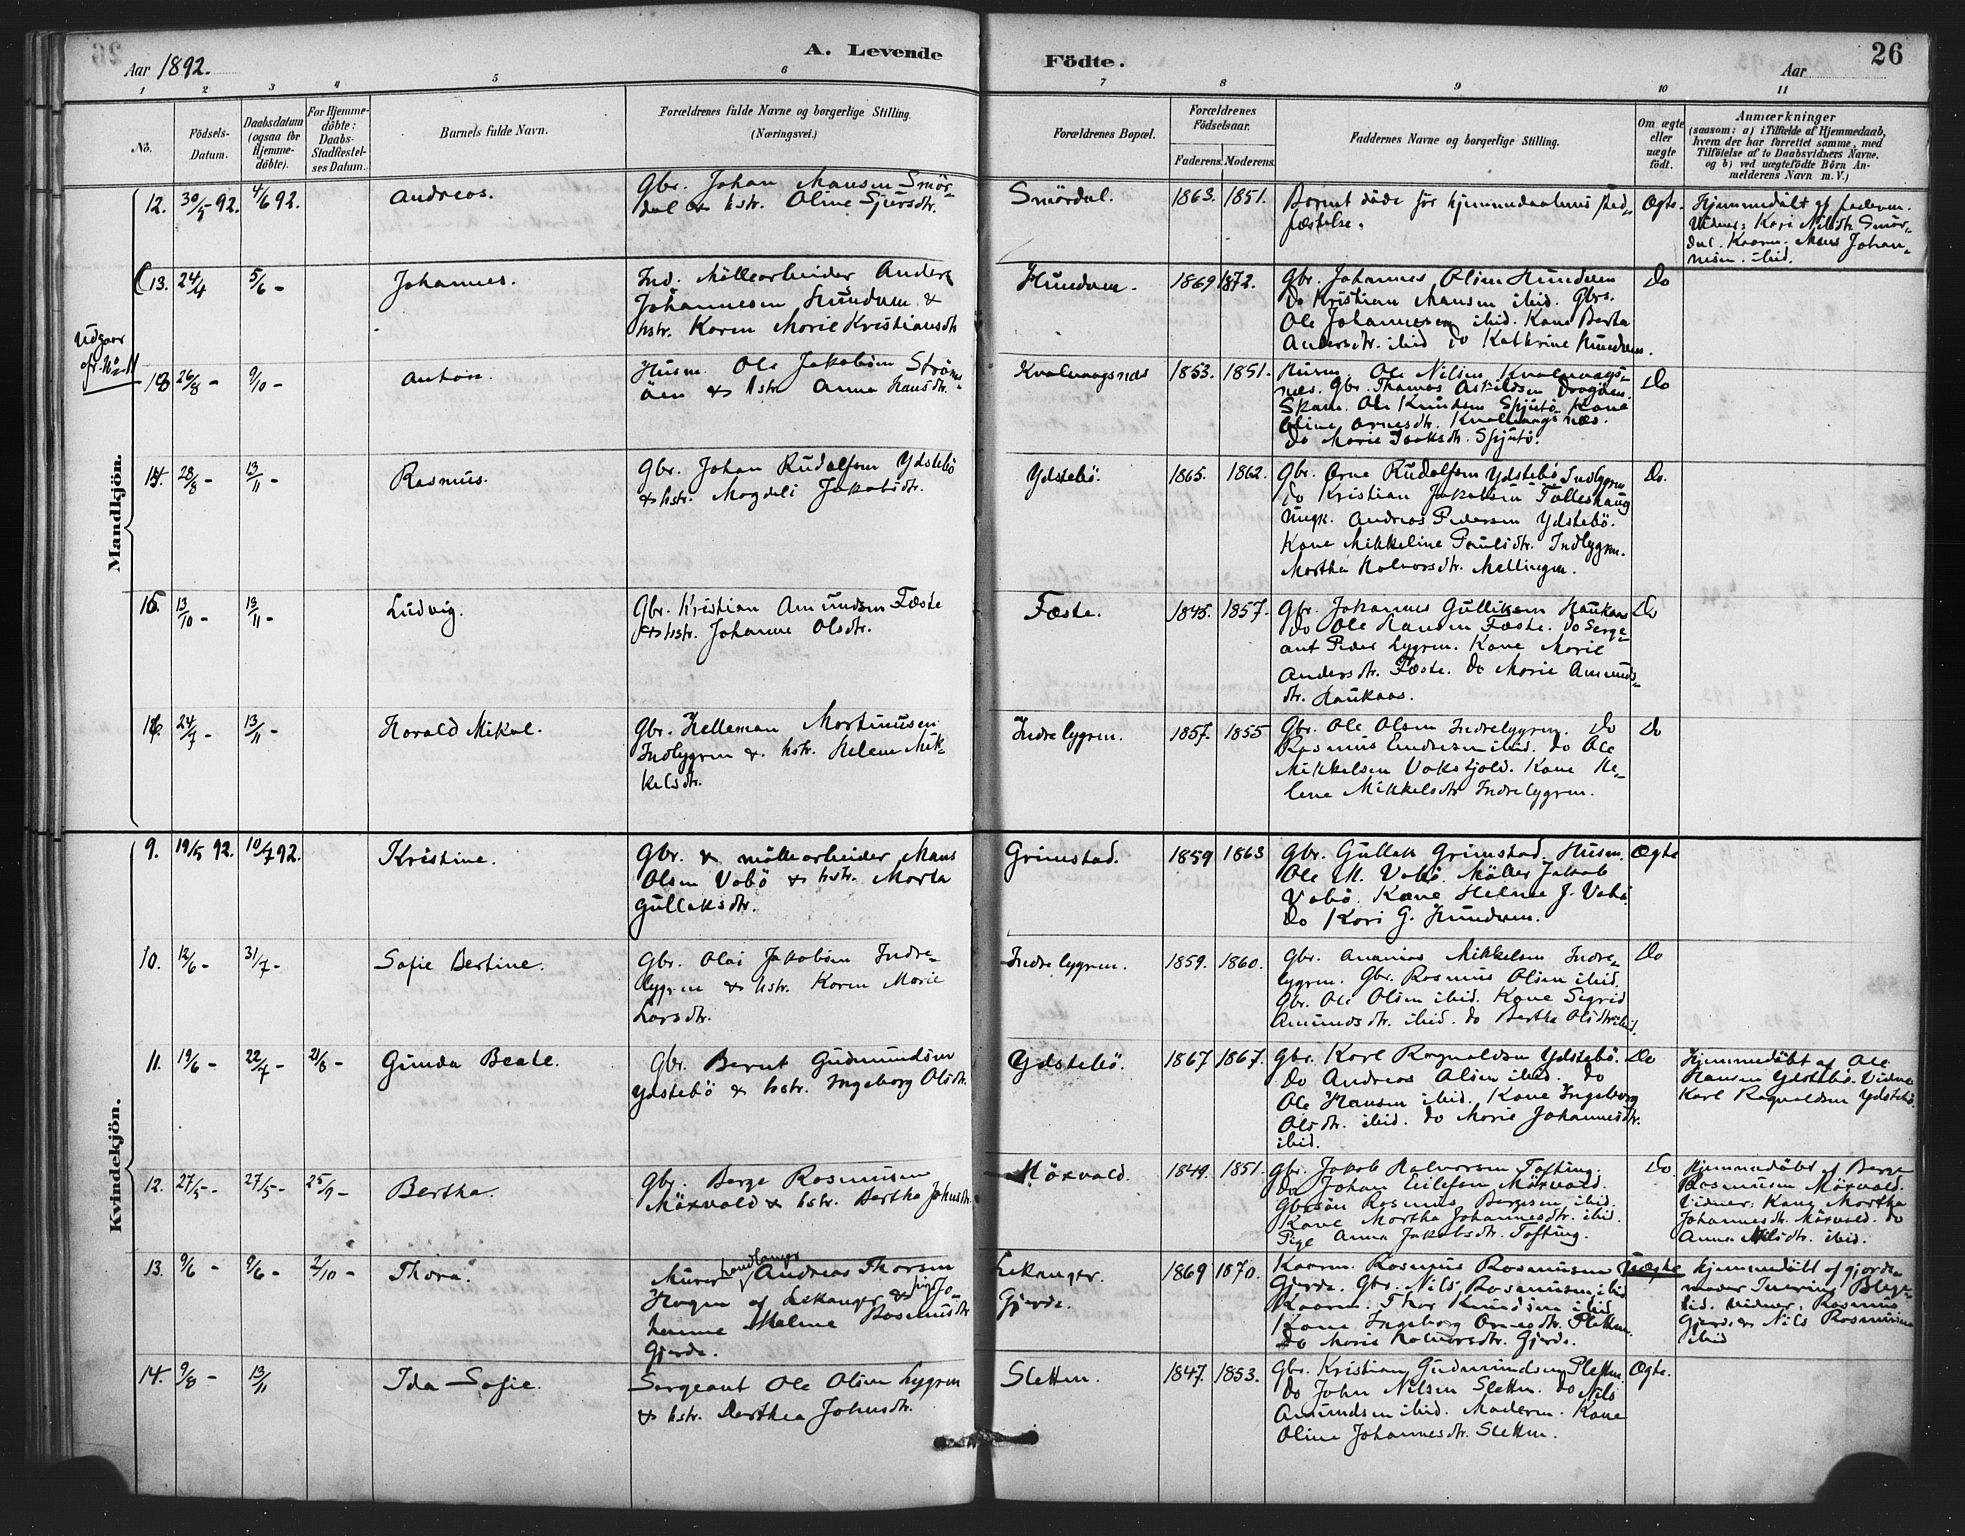 Aar 1892.
A. Levende
Födte.
Aar
26
1 2 3 4 5 6 7 8 9 10 11
No.
Födsels-
Datum.
Daabsdatum
(ogsaa for
Hjemme-
döbte).
For Hjemme-
döbte:
Daabs-
Stadfæstel-
ses Datum.
Barnets fulde Navn.
Forældrenes fulde Navne og borgerlige Stilling.
(Næringsvei.)
Forældrenes Bopæl.
Forældrenes
Födselsaar.
Faderens. Moderens.
Faddernes Navne og borgerlige Stilling.
Om ægte
eller
uægte
födt.
Anmærkninger
(saasom: a) i Tilfælde af Hjemmedaab,
hvem der har forrettet samme, med
Tilföielse af to Daabsvidners Navne,
og b) ved uægtefödte Börn An-
melderens Navn m. V.)
Mandkjön.
12. 30/5 92. 4/6 92.
Andreas.
Gbr. Johan Mansen Smör-
dal & hstr. Oline Sjursdtr.
Smördal.
1863. 1851.
Barnet döde för hjemmedaabens stad-
fæstelse.
Ægte.
Hjemmedöbt af faderen.
Vidner: Kari Nilsdtr Smör-
dal. Kaarm. Mons Johan-
nesen ibid.
13. 24/4 5/6 -
Johannes.
Ind. Möllearbeider Anders
Johannesen Hundven &
hstr. Karen Marie Kristiansdtr
Hundven.
1869 1872.
Gbr. Johannes Olsen Hundven
Do Kristian Mansen ibid. Gbrs.
Ole Johannesen ibid. Kone Bertha
Andersdtr. ibid Do Kathrine Hundven.
Do
Udgaar
13 26/8 - 9/10 -
Anton.
Husm. Ole Jakobsen Ström-
öen & hstr. Anna Hansdtr.
Kvalvaagsnæs
1853. 1851.
Husm. Ole Nilsen Kvalvaags-
næs. Gbr. Thomas
Ole Knudsen Skjutö. Kone
Oline Arnesdtr. Kvalvaagsnæs.
Do Marie Isaksdtr. Skjutö.
Do
14. 28/8 - 13/11 -
Rasmus.
Gbr. Johan Rudolfsen Ydstebö
& hstr. Magdeli Jakobsdtr.
Ydstebö.
1865. 1862.
Gbr. Arne Rudolfsen Ydstebö
Do Kristian Jakobsen
Ungk. Andreas Pedersen Ydstebö.
Kone Mikkeline Paulsdtr. Indlygren.
Martha Halvorsdtr. Mellingen.
Do.
15. 13/10 - 13/11 -
Ludvig.
Gbr. Kristian Amundsen Fæste
& hstr. Johanne Olsdtr.
Fæste.
1845. 1857.
Gbr. Johannes Gulliksen Haukaas
Do Ole Hansen Fæste. Do Serge-
ant Peder Lygren. Kone Marie
Andersdtr. Fæste. Do Marie Amunds-
dtr. Haukaas.
Do
16. 24/7 - 13/11 -
Harald Mikal.
Gbr. Helleman Martinusen
Indlygren & hstr. Helene Mik-
kelsdtr.
Indrelygren.
1857. 1855
Gbr. Ole Olsen Indrelygren. Do
Rasmus Endresen ibid. Do Ole
Mikkelsen Vaksfjold. Kone He-
lene Mikkelsdtr Indrelygren.
Do
Kvindekjön.
9. 19/5 92. 10/7 92.
Kristine.
Gbr. & möllearbeider Mans
Olsen Vabö & hstr. Marta
Gullaksdtr.
Grimstad.
1859 1863
Gbr. Gullak Grimstad. Husm.
Ole M. Vabö. Möller Jakob
Vabö. Kone Helene J. Vabö.
Do Kari G. Hundven.
Ægte
10. 12/6 - 31/7 -
Sofie Bertine.
Gbr. Olai Jakobsen Indre-
lygren & hstr. Karen Marie
Larsdtr.
Indrelygren.
1859. 1860.
Gbr. Ananias Mikkelsen Indre-
lygren. Gbr. Rasmus Olsen ibid.
Gbr. Ole Olsen ibid. Kone Sigrid
Amundsdtr. ibid. Do Bertha Olsdtr ibid.
Do
11. 19/6 - 22/7 - 21/8 -
Gunda Beate.
Gbr. Bernt Gudmundsen
Ydstebö & hstr. Ingeborg Olsdtr.
Ydstebö.
1867 1867.
Gbr. Karl Ragnvaldsen Ydstebö.
Do Andreas Olsen ibid. Do
Ole Hansen ibid. Kone Ingeborg
Olsdtr. ibid. Do Marie Johannesdtr.
ibid.
Do
Hjemmedöbt af Ole
Hansen Ydstebö. Vidne
Karl Ragnvaldsen Ydstebö.
12. 27/5 - 27/5 - 25/9 -
Bertha.
Gbr. Berge Rasmusen
Möxvald & hstr. Bertha Johnsdtr.
Möxvald.
1849. 1851.
Gbr. Jakob Halvorsen Tofting.
Do Johan Eilefsen Möxvald.
Gbrsön Rasmus Bergesen ibid.
Kone Martha Johannesdtr. ibid.
Pige Anna Jakobsdtr. Tofting.
Do
Hjemmedöbt af Berge
Rasmusen Möxvald.
Vidner: Kone Martha
Johannesdtr. Möxvald. Do
Anna Nilsdtr. ibid.
13. 9/6 - 9/6 - 2/10 -
Thora.
Murer handlanger Andreas Thorsen
Hagen af Lekanger & pige Jo-
hanne Malene Rasmusdtr
Gjerde.
Lekanger.
Gjerde.
1869 1870.
Kaarm. Rasmus Rasmusen
Gjerde. Gbr. Nils Rasmusen ibid
Kaarm. Thor Knudsen ibid.
Kone Ingeborg Arnesdtr. Sletten.
Do Marie Halvorsdtr. Gjerde.
Uægte
hjemmedöbt af gjorde-
moder
Vidner: Rasmus
Gjerde & Nils Rasmusen
ibid
14. 9/8 - 13/11
Ida Sofie.
Sergeant Ole Olsen Lygren
& hstr. Dorthea Johnsdtr.
Sletten.
1847. 1853.
Gbr. Kristian Gudmundsen Sletten.
Do John Nilsen Sletten. Do Nils
Amundsen ibid. Moderen. Kone
Oline Johannesdtr. Sletten.
Ægte.